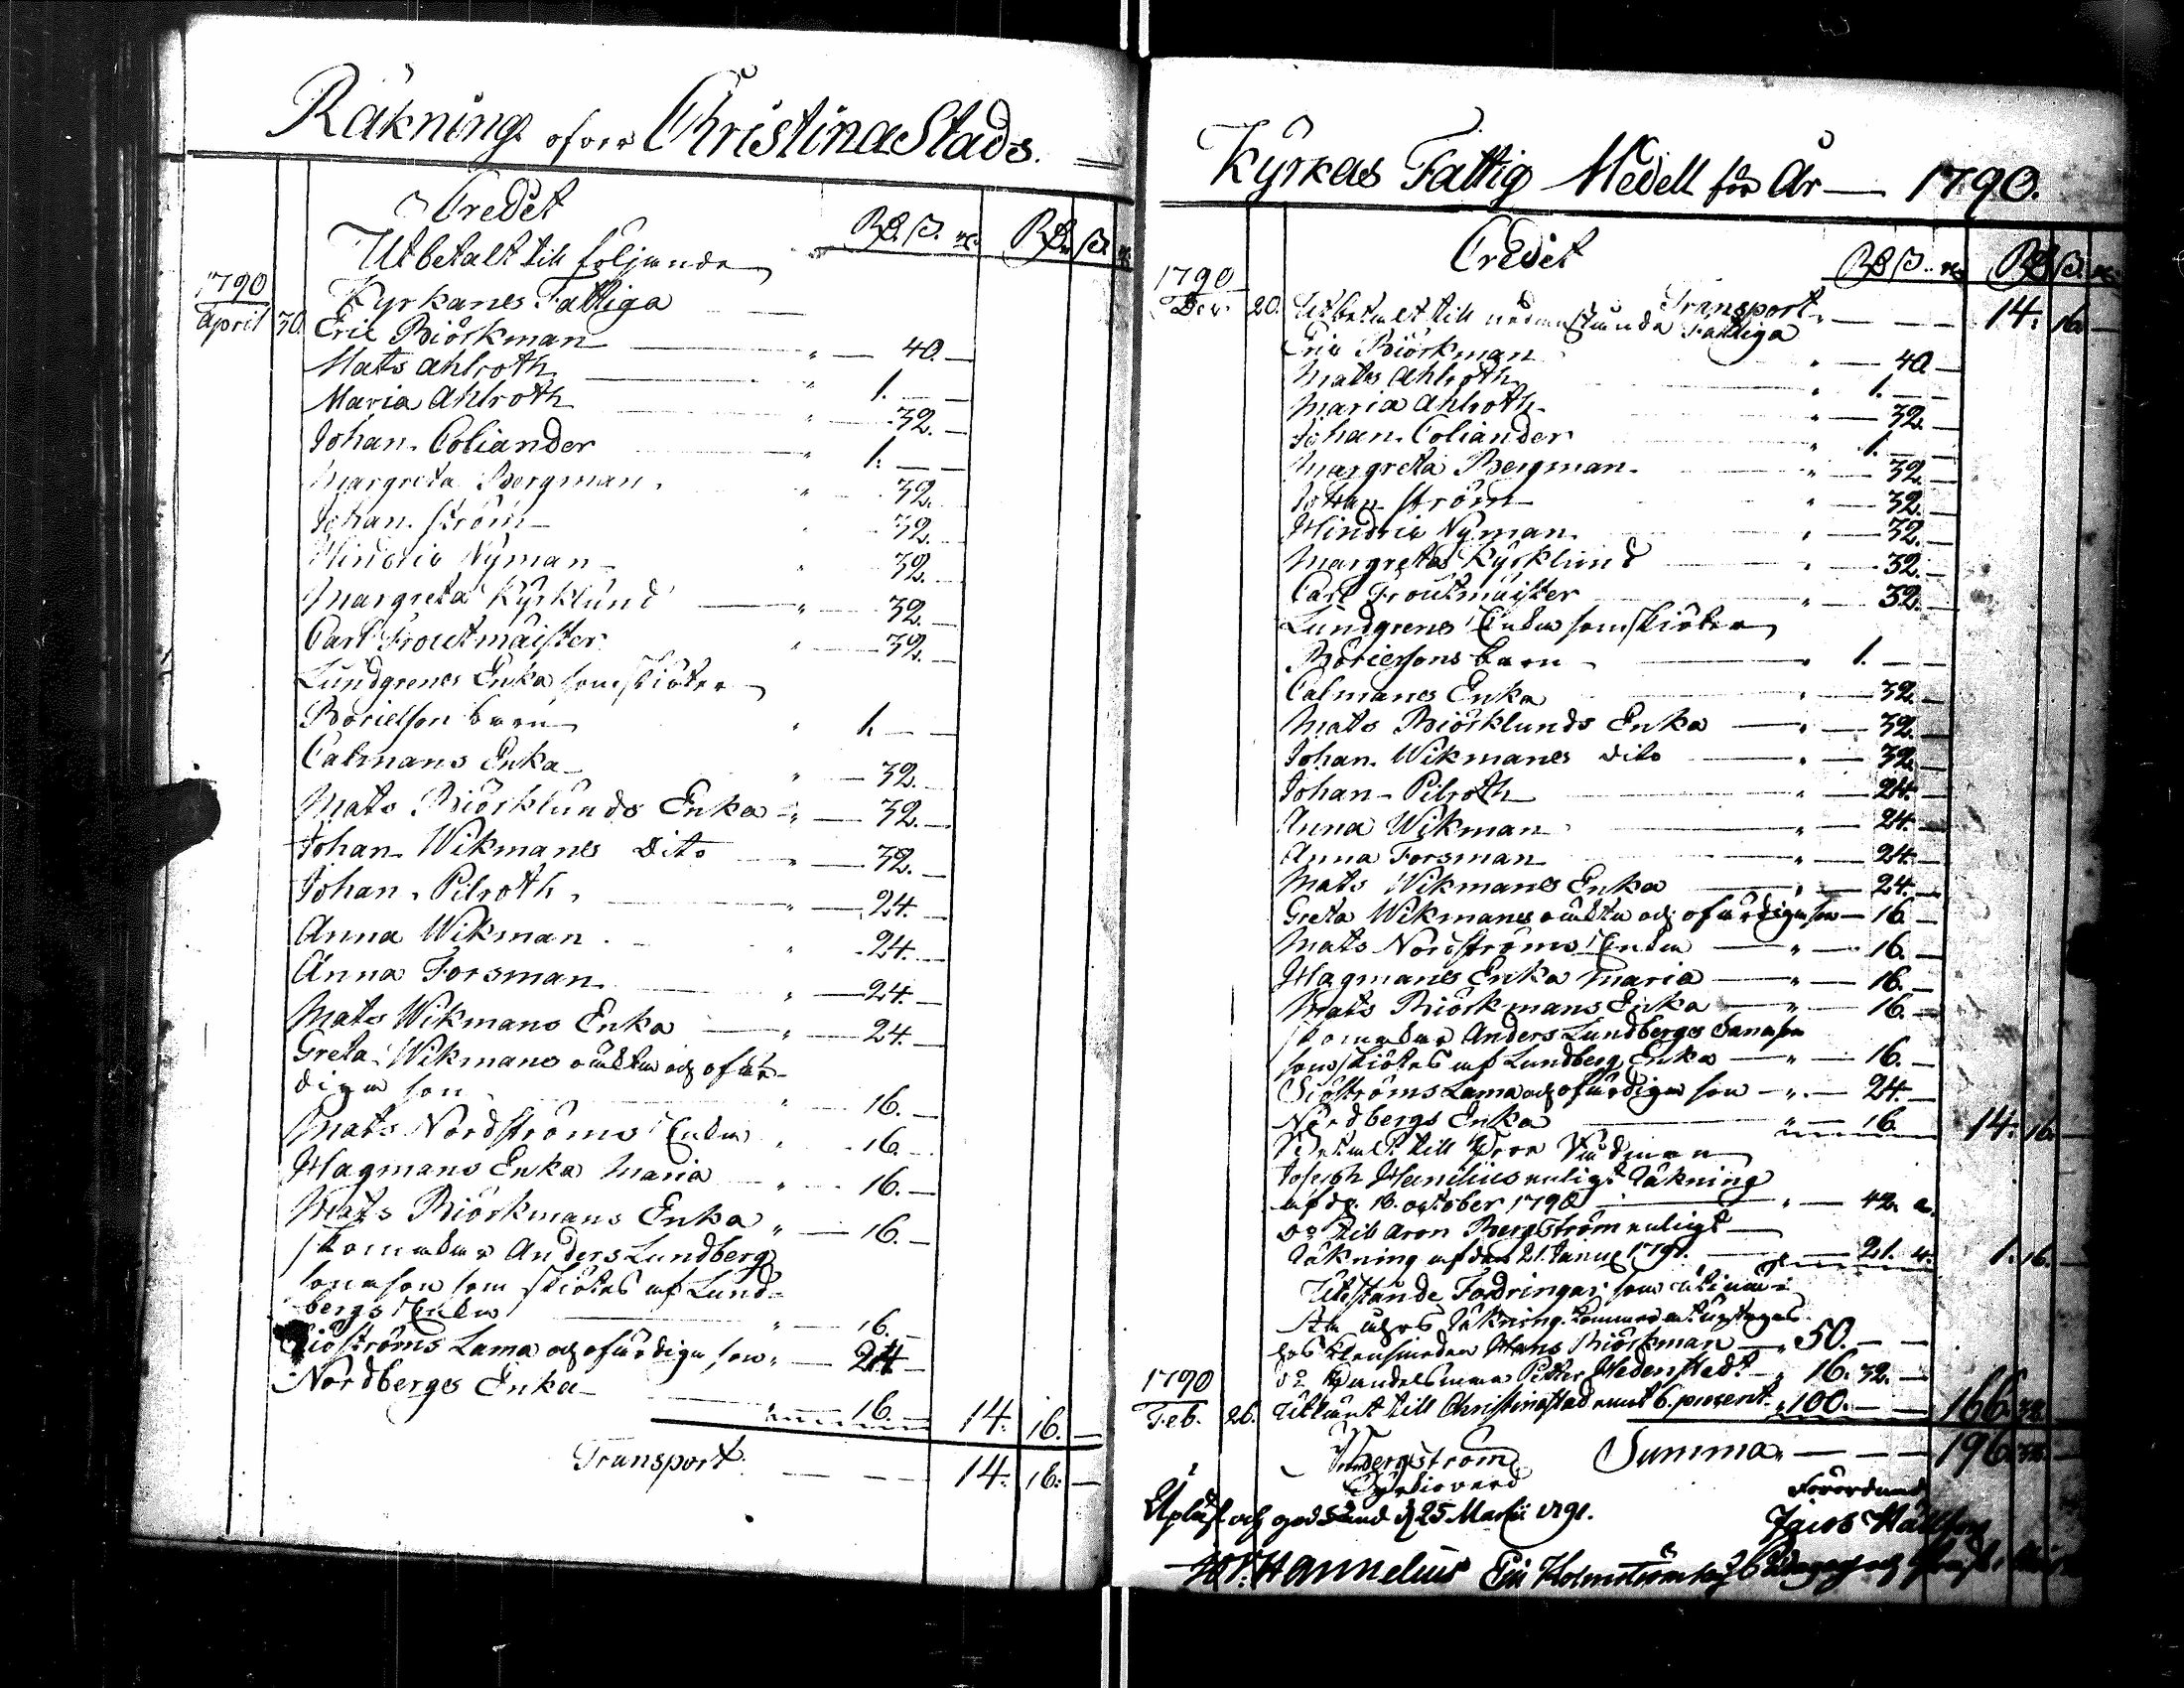 Räkning ofver Christina Stads
Credet
Utbetalt till följande
Rd. ß. rs. Rd. ß. rs.
1790
Kyrkanes Fattiga
April 30. Eric Biörkman " — 40. —
Mats Ahlroth " 1. — —
Maria Ahlroth " — 32. —
Johan Coliander " 1. — —
Margreta Bergman " — 32. —
Johan Ström " — 32. —
Hindric Nyman " — 32. —
Margreta Kyrklund " — 32. —
Carl Troutmäister " — 32. —
Lundgrenes Enka som skiöter
Borielson barn " 1. — —
Calmans Enka " — 32. —
Mats Biörklunds Enka " — 32. —
Johan Wikmanes dito " — 32. —
Johan Pilroth " — 24. —
Anna Wikman " — 24. —
Anna Forsman " — 24. —
Mats Wikmans Enka " — 24. —
Greta Wikmans och ofär-
diga son " — 16. —
Mats Nordströms Enka " — 16. —
Hagmans Enka Maria " — 16. —
Mats Biörkmans Enka " — 16. —
Anders Lundberg
som skiötes af Lund-
bergs Enka " — 16. —
Siöströms Lama och ofärdiga son " — 24 —
Nordberges Enka " — 16. — 14. 16. —
Transport — — — 14. 16. —
Kyrkas Fattig Medell för År — 1790.
Credit
Rd ß. rs Rd ß. rs
1790
Transport " — — — 14. 16. —
Dec. 20. Utbetalt till nedanstående Fattiga
Eric Biörkman " — 40 —
Mats Ahlroth " 1. — —
Maria Ahlroth " — 32. —
Johan Coliander " 1. — —
Margreta Bergman " — 32. —
Johan Ström " — 32. —
Hindric Nyman " — 32. —
Margreta Kyrklund " — 32. —
Carl Troutmäister " — 32. —
Lundgrenes Enka som skiöter
Boriersons barn " 1. — —
Calmanes Enka " — 32. —
Mats Biörklunds Enka " — 32. —
Johan Wikmanes dito " — 32. —
Johan Pilroth " — 24. —
Anna Wikman " — 24. —
Anna Forsman " — 24. —
Mats Wikmanes Enka " — 24. —
Greta Wikmanes och ofärdiga son — 16 —
Mats Nordströms Enka " — 16. —
Hagmanes Enka Maria " — 16. —
Mats Biörkmans Enka " — 16. —
Anders Lundberges
som skiötes af Lundberg Enka " — 16. —
Siöströms Lama och ofärdiga son " — 24. —
Nordbergs Enka " — 16. 14. 16. —
Betalt till
Joseph enligt Räkning
af d. 18. October 1790 " — 42.
do till Aron Bergström enligt
Räkning af den 21. Januarii 1791. " — 21. 1. 16. —
Utestående Fordringar som
Räkning kommer at uptagas
hos Hans Biörkman — " 50. — —
do Handelsman Petter Hedenstedt " 16. 32. —
1790
Feb. 26. Utlånt till Christinæstad emot 6. procent " 100. — — 166. 32
Summa " — — — 196.
Bergström
Upläst och godkänd d. 25 Martii 1791.
Jacob
Hannelius Eric Holmström